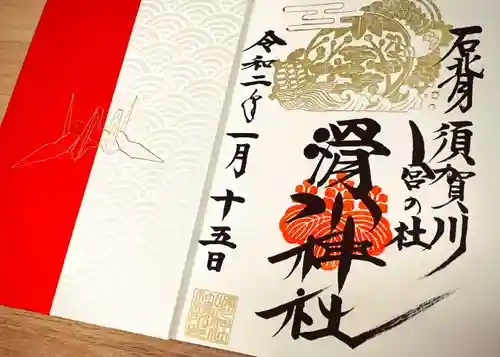 石背
須賀川
一宮の杜
滑川神社
令和二年一月十五日